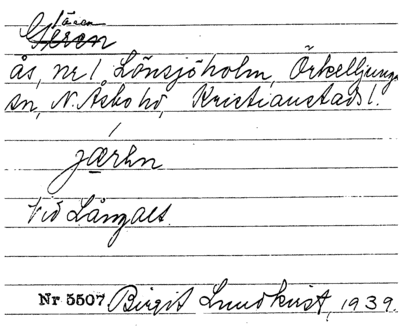 Jären
Geren
ås, nr 1 Lönsjöholm, Örkelljunga
sn, N. Åsbo hd, Kristianstads l.
jæ̲rən
Vid Långalt.
Nr 5507 Birgit Lundkvist, 1939.